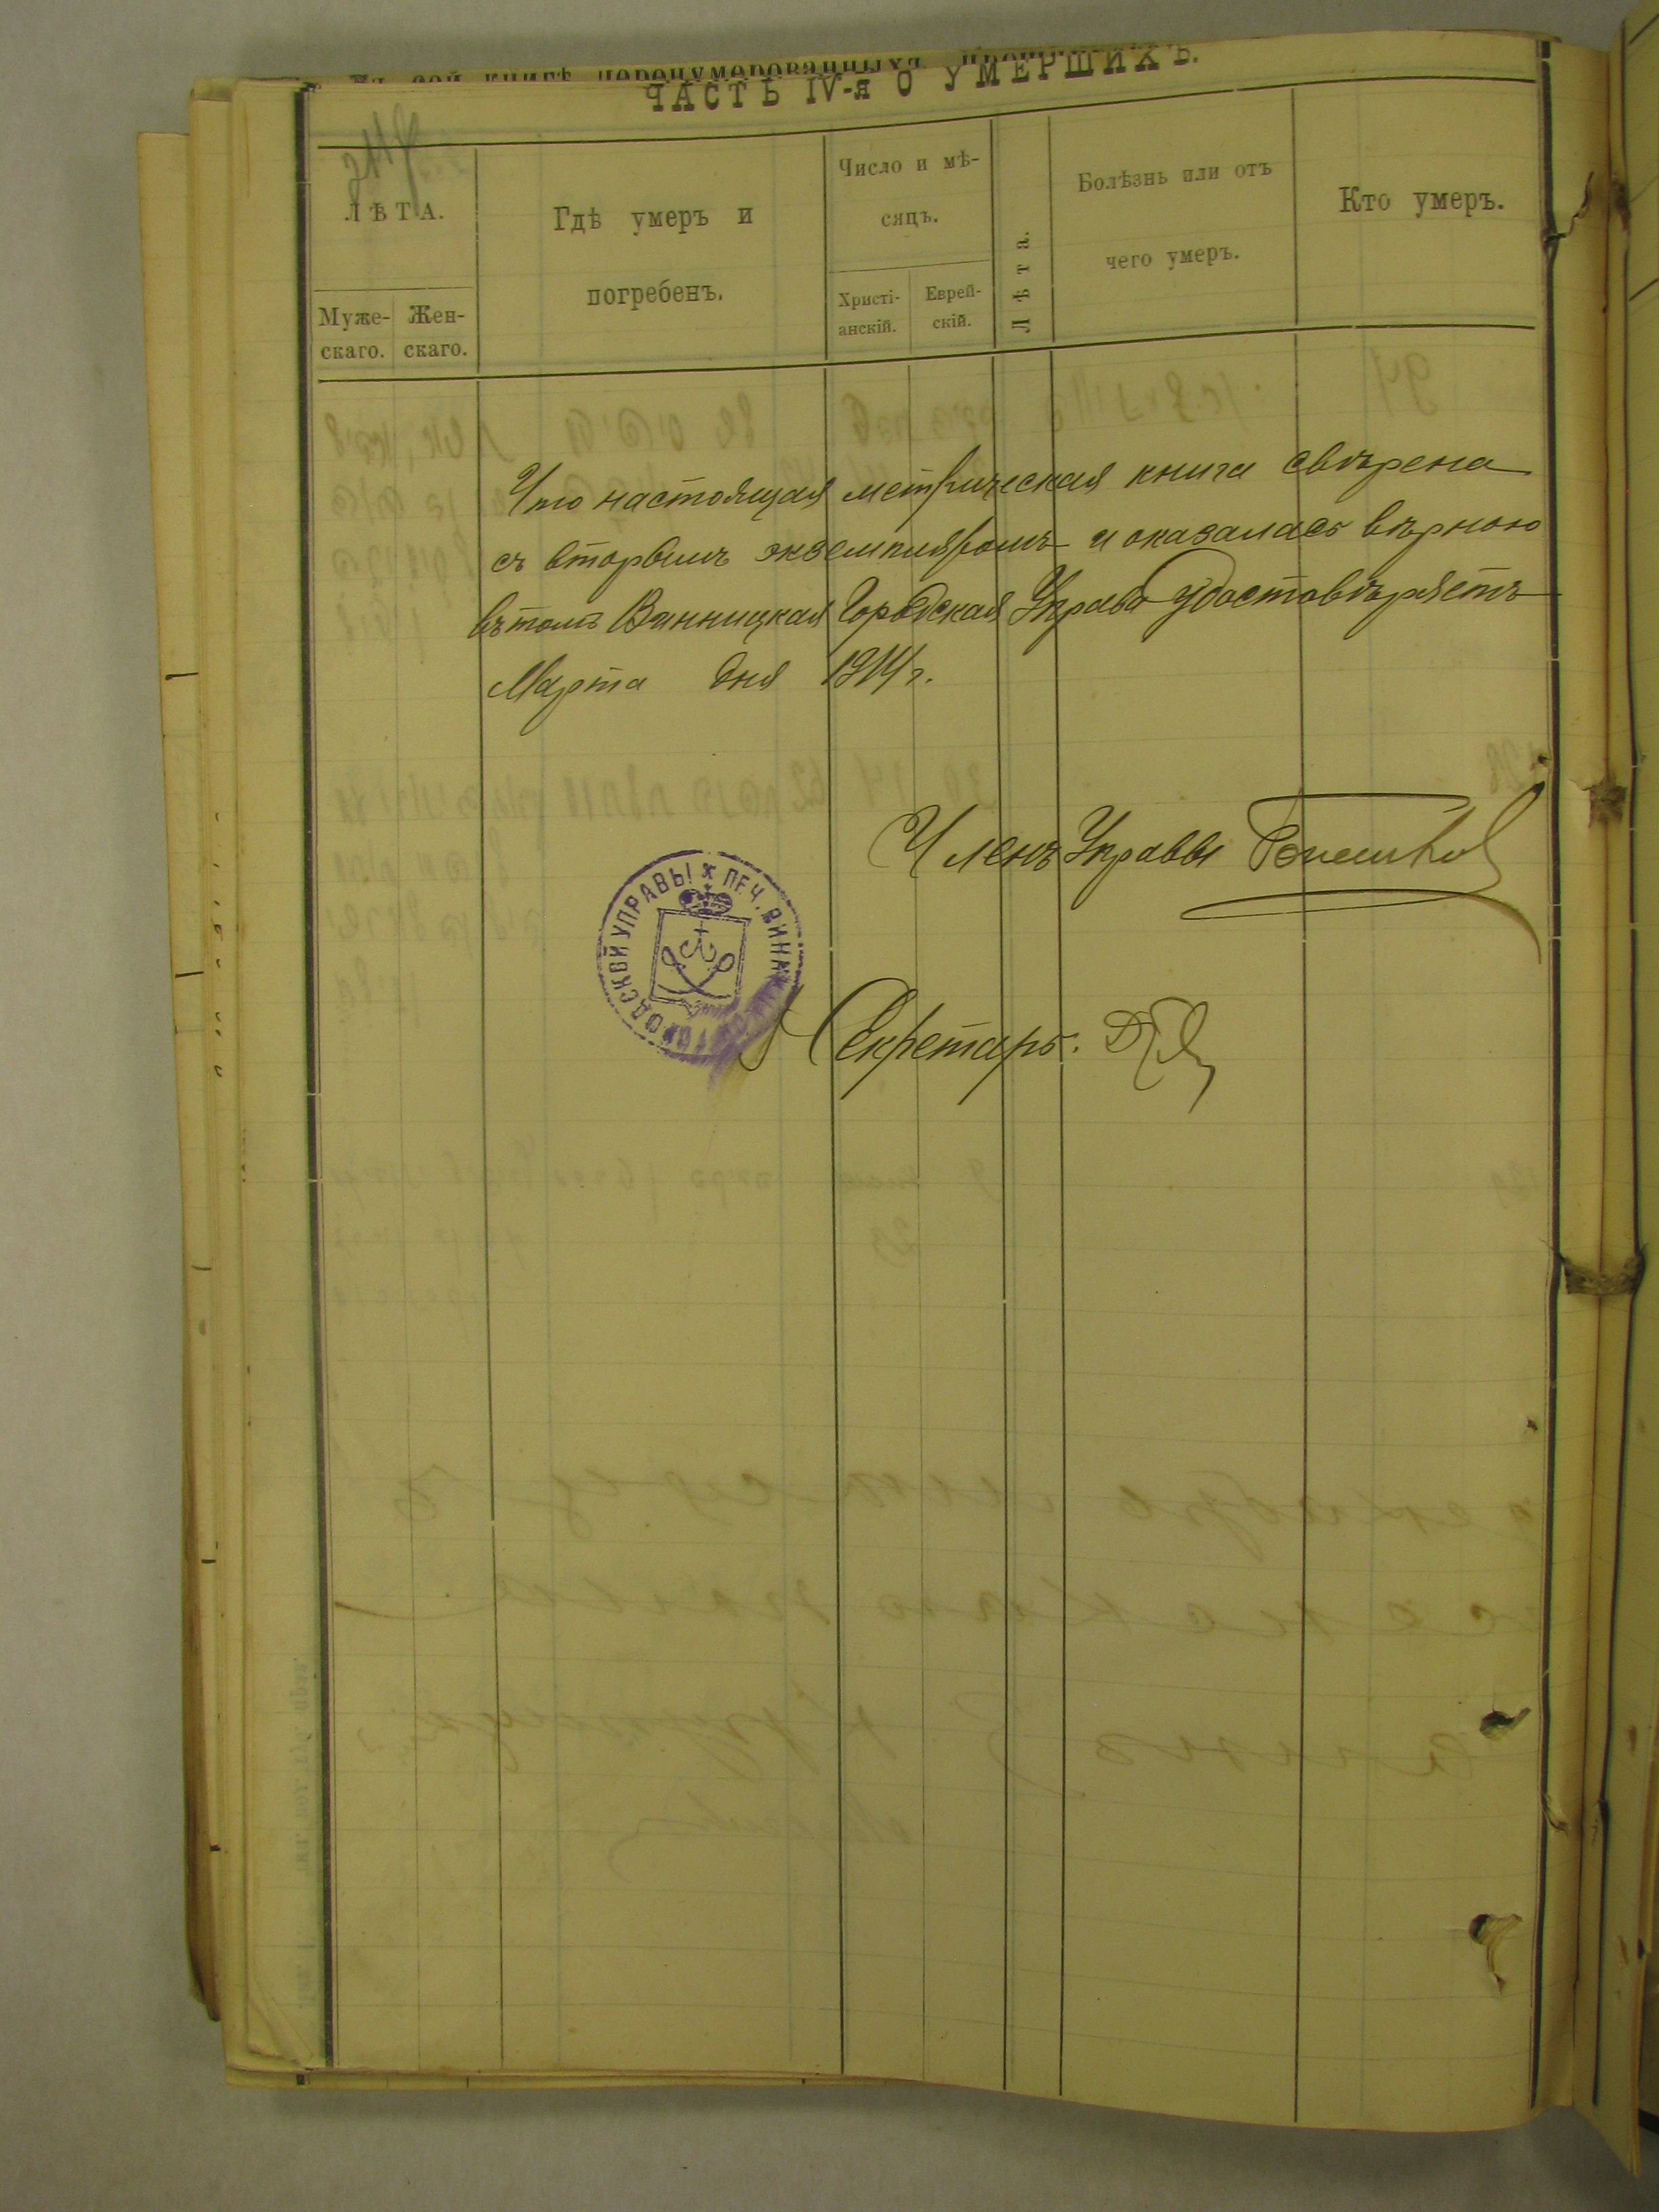 въ сей книгѣ перенумерованныхъ
ЧАСТЬ IV-я О УМЕРШИХЪ.
ЛѢТА.
Муже-
скаго.
Жен-
скаго.
Гдѣ умеръ и
погребенъ.
Число и мѣ-
сяцъ.
Христі-
анскій.
Еврей-
скій.
Лѣта.
Болѣзнь или отъ
чего умеръ.
Кто умеръ.
Что настоящая метрическая книга свѣрена
съ вторымъ экземпляромъ и оказалась вѣрною
въ томъ Винницкая Городская Управа удостовѣряетъ
Марта дня 1914 г.
Членъ Управы
ПЕЧ. ВИНН ГОРОДСКОЙ УПРАВЫ
Секретарь.